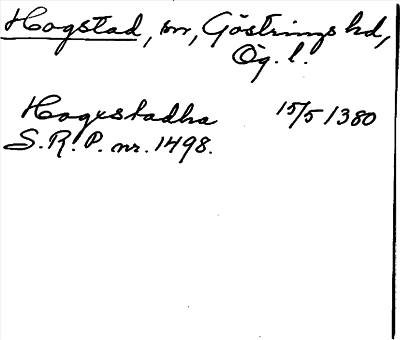 Hogstad, sn, Göstrings hd,
Ög. l.
Hogxstadha 15/5 1380
S.R.P. nr. 1498.